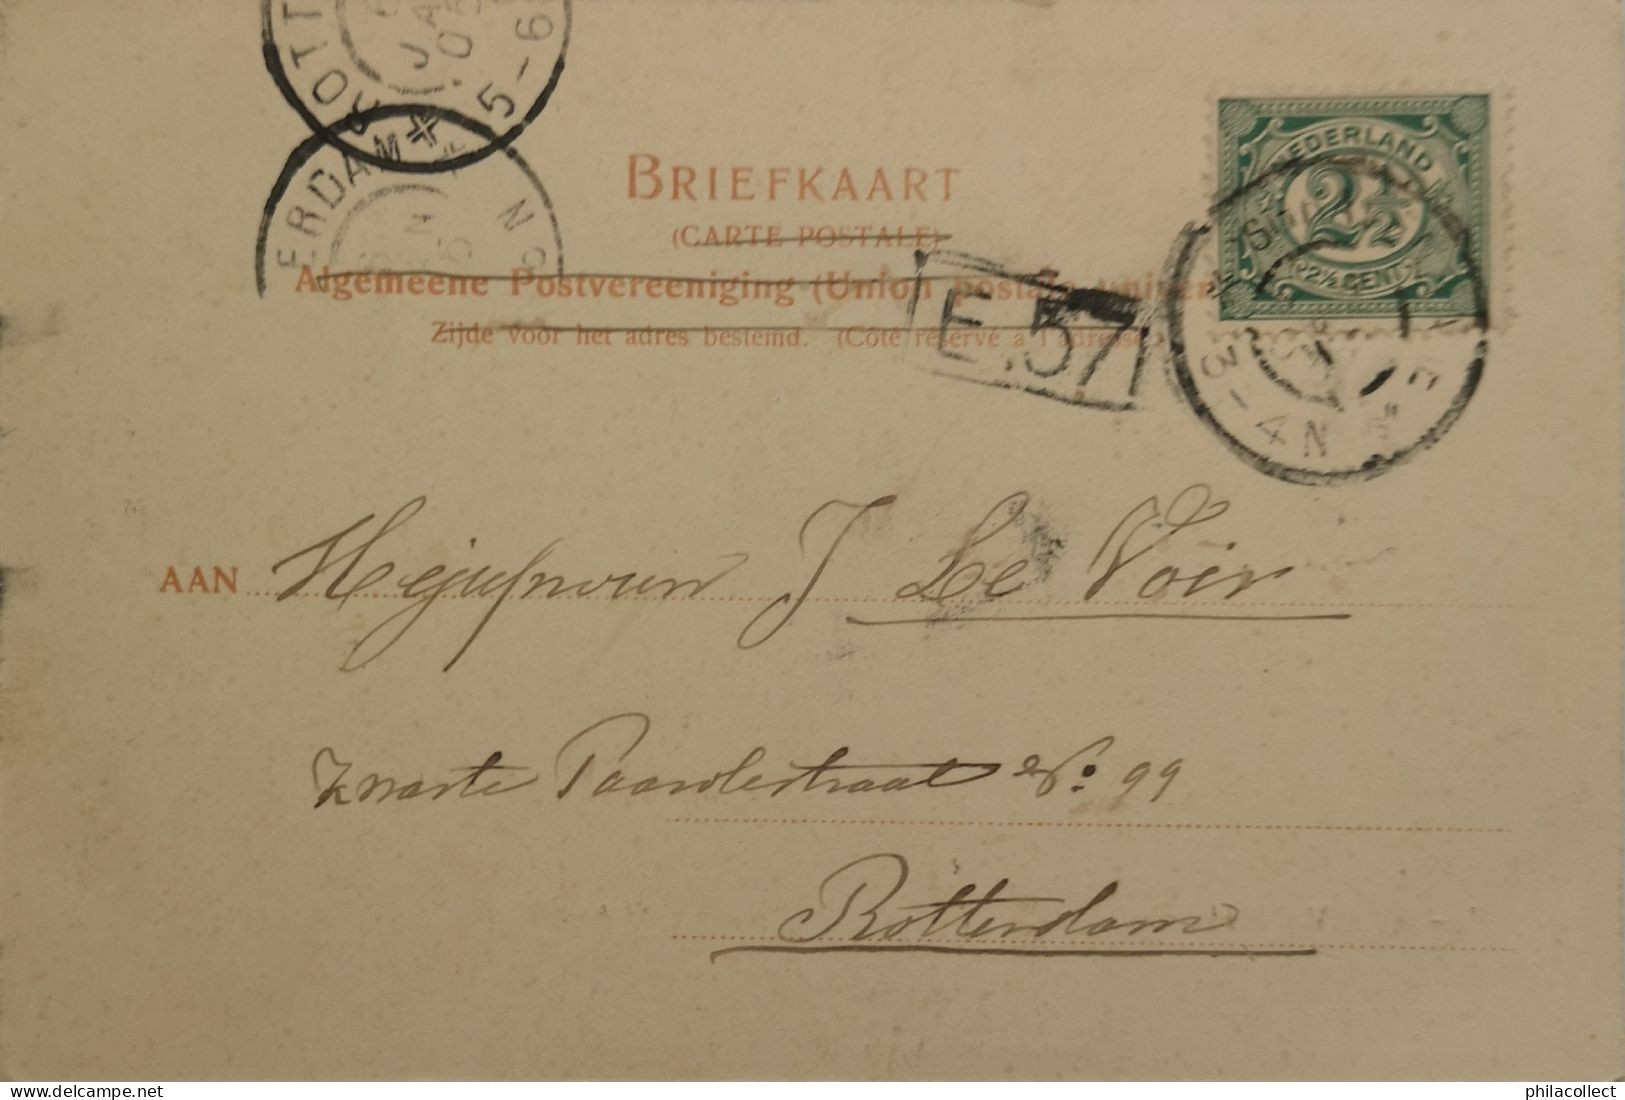 ROTT
JA
05
5-6
ERDAM
N
BRIEFKAART
(CARTE POSTALE)
Algemeene Postvereeniging (Union postale univer
Zijde voor het adres bestemd. (Côté réservé à l'adresse
E.57
NEDERLAND
2½
2½ CENT
3-4N
AAN Mejufvrouw J Le Voir
Zwarte Paardestraat No. 99
Rotterdam
philacollect